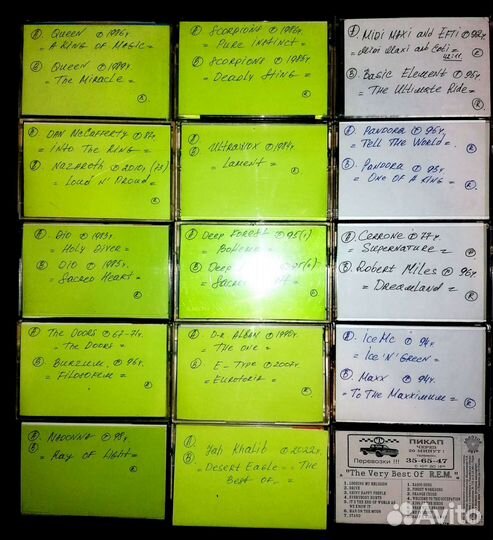 A. Queen 1986г.
= A Kind of Magic =
B. Queen 1989г.
= The Miracle =
R.
A. Scorpions 1996г.
= Pure Instinct =
B. Scorpions
= Deadly Sting =
R.
A. Midi Maxi and Efti
= Midi Maxi and Efti =
42:11
B. Basic Element 95г.
= The Ultimate Ride =
R.
A. Dan McCafferty 87г.
= Into The Ring =
B. Nazareth 2010г.
= Loud N' Proud =
R.
A. Ultravox 1984г.
B.
= Lament =
R.
A. Pandora 96г.
= Tell The World =
B. Pandora 93г.
= One of a King =
R.
A. Dio 1983г.
= Holy Diver =
B. Dio 1985г.
= Sacred Heart =
R.
A. Deep Forest 95
= Boheme =
B. Deep
R.
A. Cerrone 77г.
= Supernature =
B. Robert Miles 96г.
= Dreamland =
R.
A. The Doors 67-71г.
= The Doors =
B. Burzum 96г.
= Filosofem =
R.
A. D-r Alban 1990г.
= The One =
B. E-Type 2007г.
= Euroforia =
R.
A. Ice Mc 94г.
= Ice 'N' Green =
B. Maxx 94г.
= To The Maxximum =
R.
A. Madonna 98г.
B.
= Ray of Light =
R.
A. Jah Khalib 2022г.
B.
= Desert Eagle - The
Best of... =
R.
ПИКАП
ЧЕРЕЗ
20 МИНУТ !
Перевозки !!!
35-65-47
"The Very Best Of R.E.M."
1. LOOSING MY RELIGION
2. DRIVE
3. SHINY HAPPY PEOPLE
4. EVERYBODY HURTS
5. IT'S THE END OF WORLD AS
WE KNOW IT
6. MAN ON THE MOON
7. STAND
1. RADIO SONG
2. FINEST WORKSONG
3. ORANGE CRUSH
4. WELCOME TO THE OCCUPATION
Avito